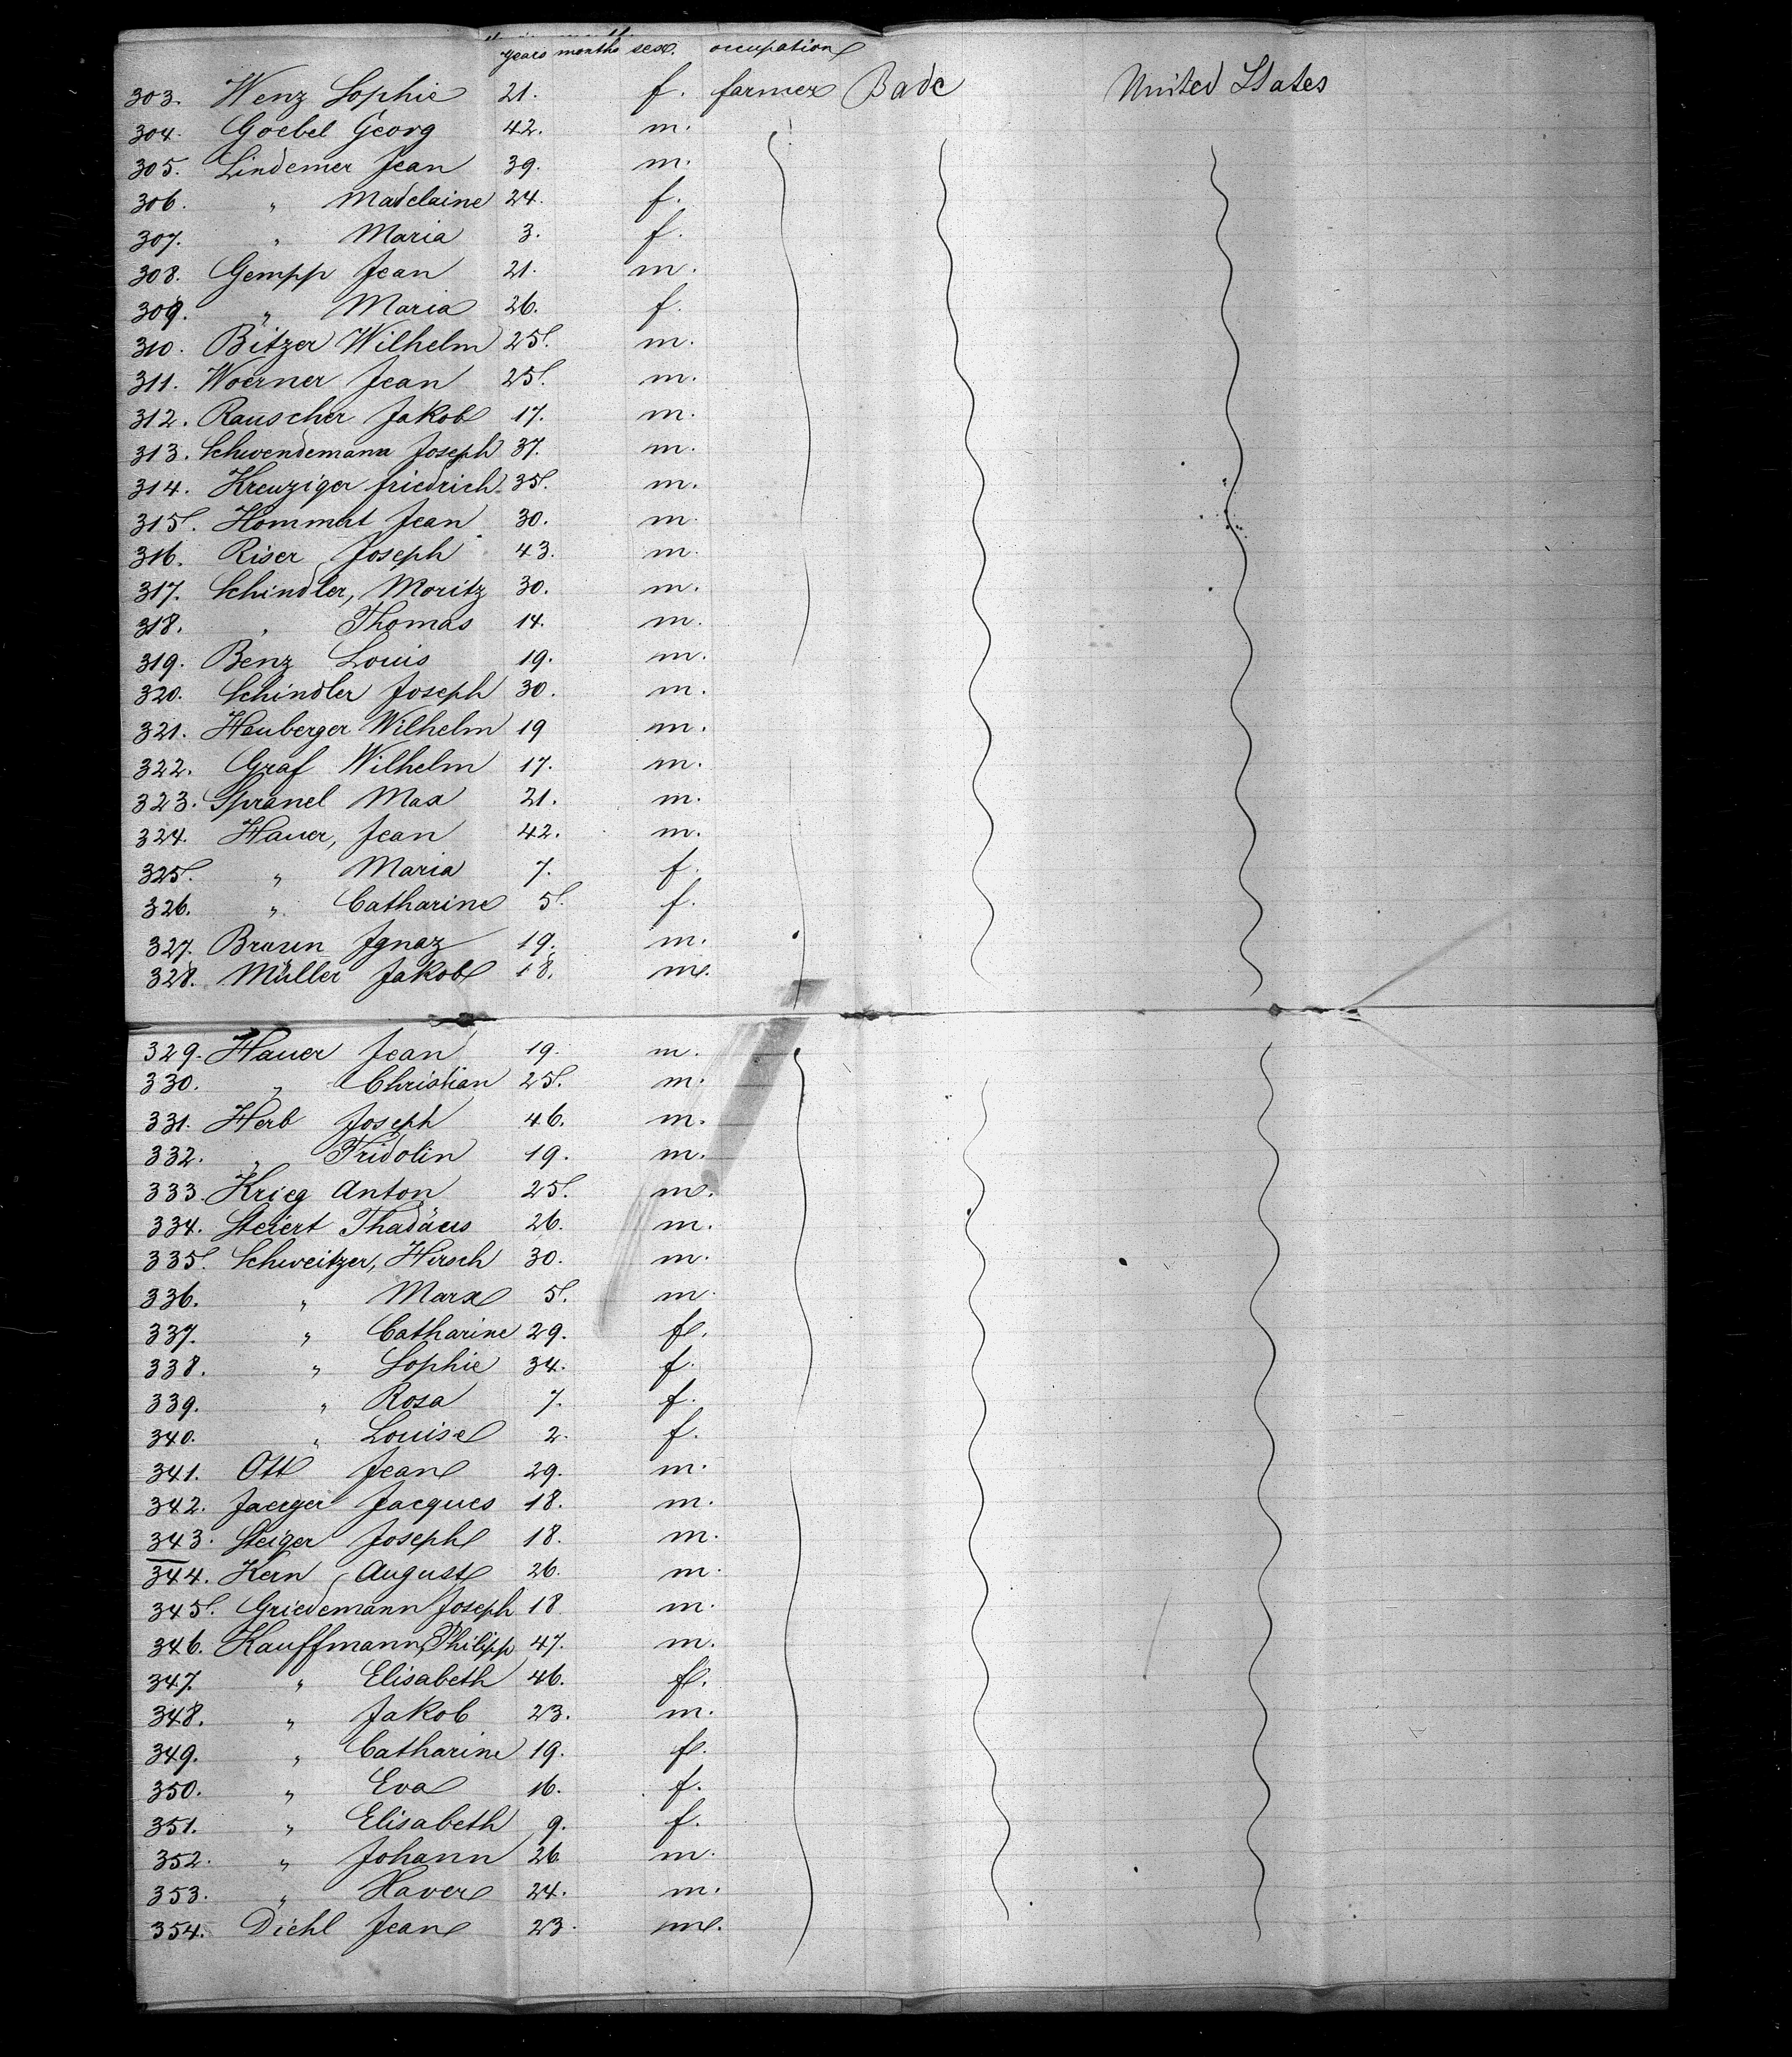 years months sex. occupation
303. Wenz Sophie 21. f. farmer Bade United States
304. Goebel Georg 42. m.
305. Lindemer Jean 39. m.
306. " Madelaine 24. f.
307. " Maria 3. f.
308. Gempp Jean 21. m.
309. " Maria 26. f.
310. Bitzer Wilhelm 25. m.
311. Woerner Jean 25. m.
312. Rauscher Jakob 17. m.
313. Schwendemann Joseph 37. m.
314. Kreuziger friedrich 35. m.
315. Jean 30. m.
316. Riser Joseph 43. m.
317. Schindler, Moritz 30. m.
318. " Thomas 14. m.
319. Benz Louis 19. m.
320. Schindler Joseph 30. m.
321. Heuberger Wilhelm 19 m.
322. Graf Wilhelm 17. m.
323. Spranel Max 21. m.
324. Hauer, Jean 42. m.
325. " Maria 7. f.
326. " Catharine 5. f.
327. Braun Ignaz 19. m.
328. Müller Jakob 18. m.
329. Hauer Jean 19. m.
330. " Christian 25. m.
331. Herb Joseph 46. m.
332. " Fridolin 19. m.
333. Krieg Anton 25. m.
334. Steiert Thadäus 26. m.
335. Schweitzer, Hirsch 30. m.
336. " Marx 5. m.
337. " Catharine 29. f.
338. " Sophie 34. f.
339. " Rosa 7. f.
340. " Louise 2. f.
341. Ott Jean 29. m.
342. Jaeger Jacques 18. m.
343. Steiger Joseph 18. m.
344. Kern August 26. m.
345. Griedemann Joseph 18 m.
346. Kauffmann, Philipp 47. m.
347. " Elisabeth 46. f.
348. " Jakob 23. m.
349. " Catharine 19. f.
350. " Eva 16. f.
351. " Elisabeth 9. f.
352. " Johann 26 m.
353. " Xaver 24. m.
354. Diehl Jean 23. m.